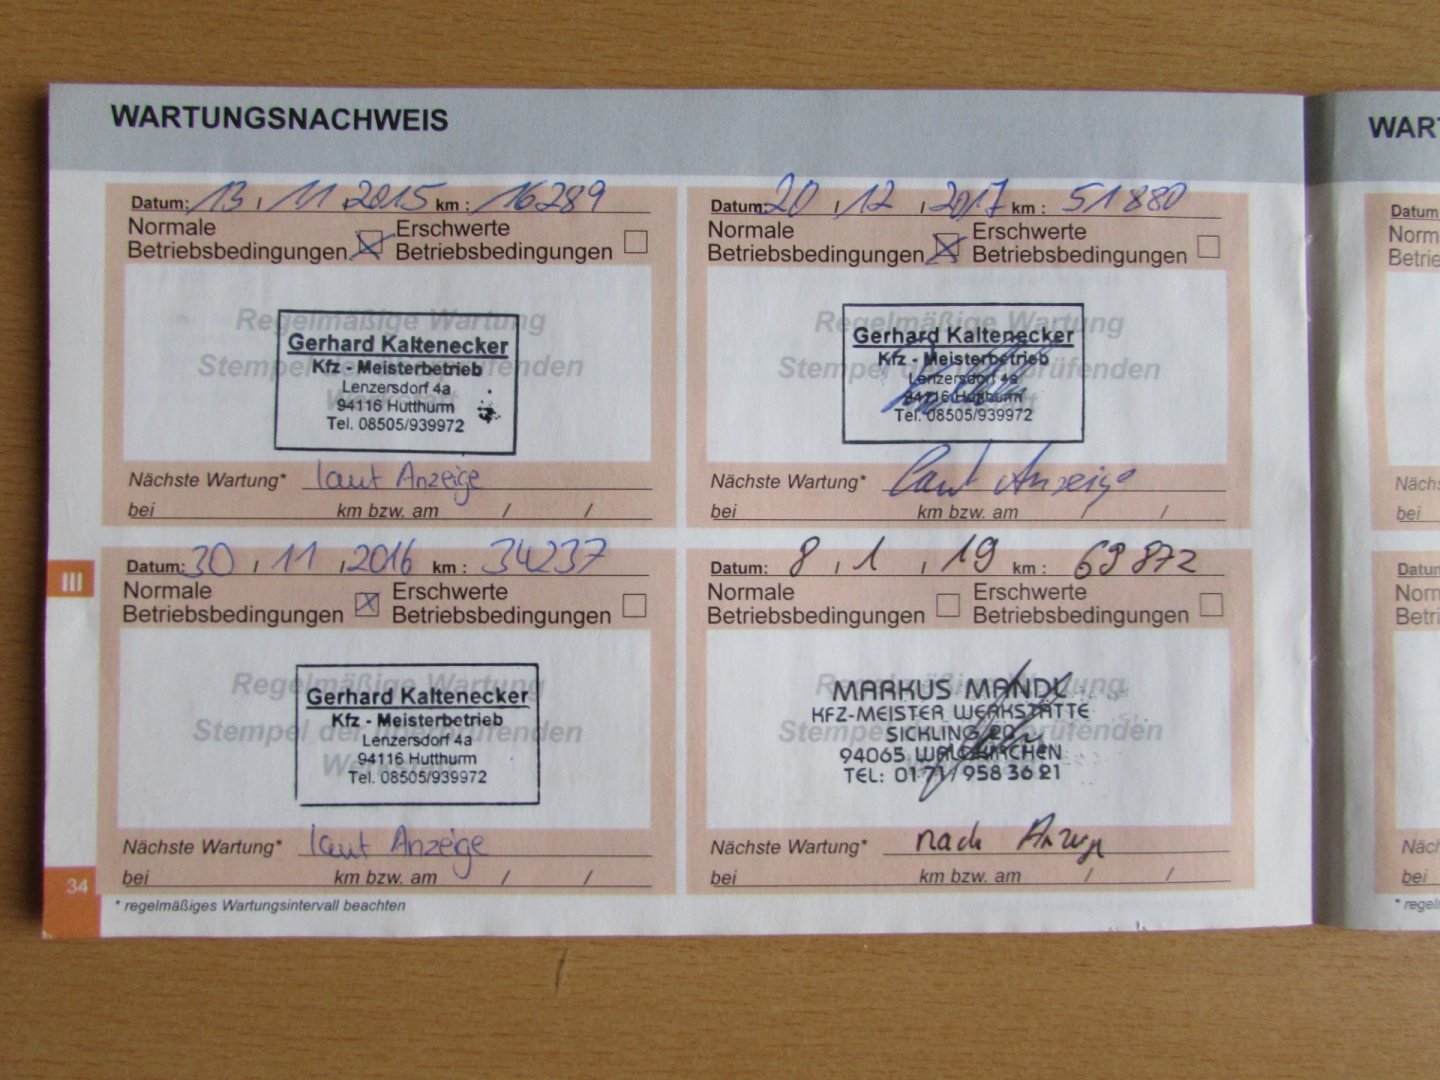 WARTUNGSNACHWEIS
Datum: 13 / 11 / 2015 km : 16289
Normale Betriebsbedingungen
Erschwerte Betriebsbedingungen
Regelmäßige Wartung
Stempel der überprüfenden
Gerhard Kaltenecker
Kfz - Meisterbetrieb
Lenzersdorf 4a
94116 Hutthurm
Tel. 08505/939972
Nächste Wartung* laut Anzeige
bei km bzw. am / /
Datum: 30 / 11 / 2016 km : 34237
Normale Betriebsbedingungen
Erschwerte Betriebsbedingungen
Regelmäßige Wartung
Stempel der überprüfenden
Gerhard Kaltenecker
Kfz - Meisterbetrieb
Lenzersdorf 4a
94116 Hutthurm
Tel. 08505/939972
Nächste Wartung* laut Anzeige
bei km bzw. am / /
* regelmäßiges Wartungsintervall beachten
Datum: 20 / 12 / 2017 km : 51880
Normale Betriebsbedingungen
Erschwerte Betriebsbedingungen
Regelmäßige Wartung
Stempel der überprüfenden
Gerhard Kaltenecker
Kfz - Meisterbetrieb
Lenzersdorf 4a
94116 Hutthurm
Tel. 08505/939972
Nächste Wartung* laut Anzeige
bei km bzw. am / /
Datum: 8 / 1 / 19 km : 69872
Normale Betriebsbedingungen
Erschwerte Betriebsbedingungen
Regelmäßige Wartung
Stempel der überprüfenden
MARKUS MANDL
KFZ-MEISTER WERKSTÄTTE
SICKLING 20
94065 WALDKIRCHEN
TEL: 0171/958 36 21
Nächste Wartung* nach
bei km bzw. am / /
III
34
WART
Datum
Norm
Betrie
Nächs
bei
Datun
Norn
Betri
Näch
bei
* regeln